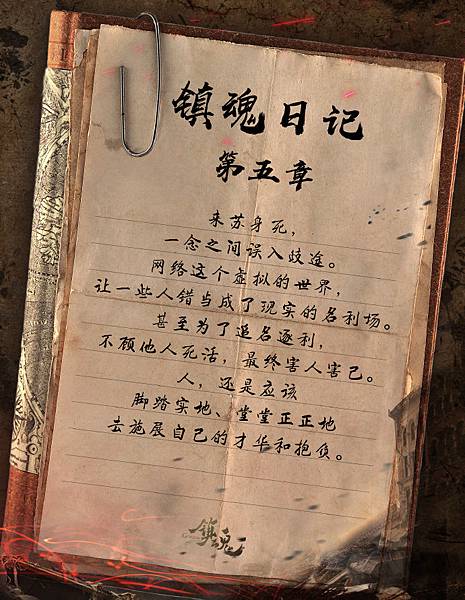 镇魂日记
第五章
来苏身死，
一念之间误入歧途。
网络这个虚拟的世界，
让一些人错当成了现实的名利场。
甚至为了追名逐利，
不顾他人死活，最终害人害己。
人，还是应该
脚踏实地、堂堂正正地
去施展自己的才华和抱负。
镇魂